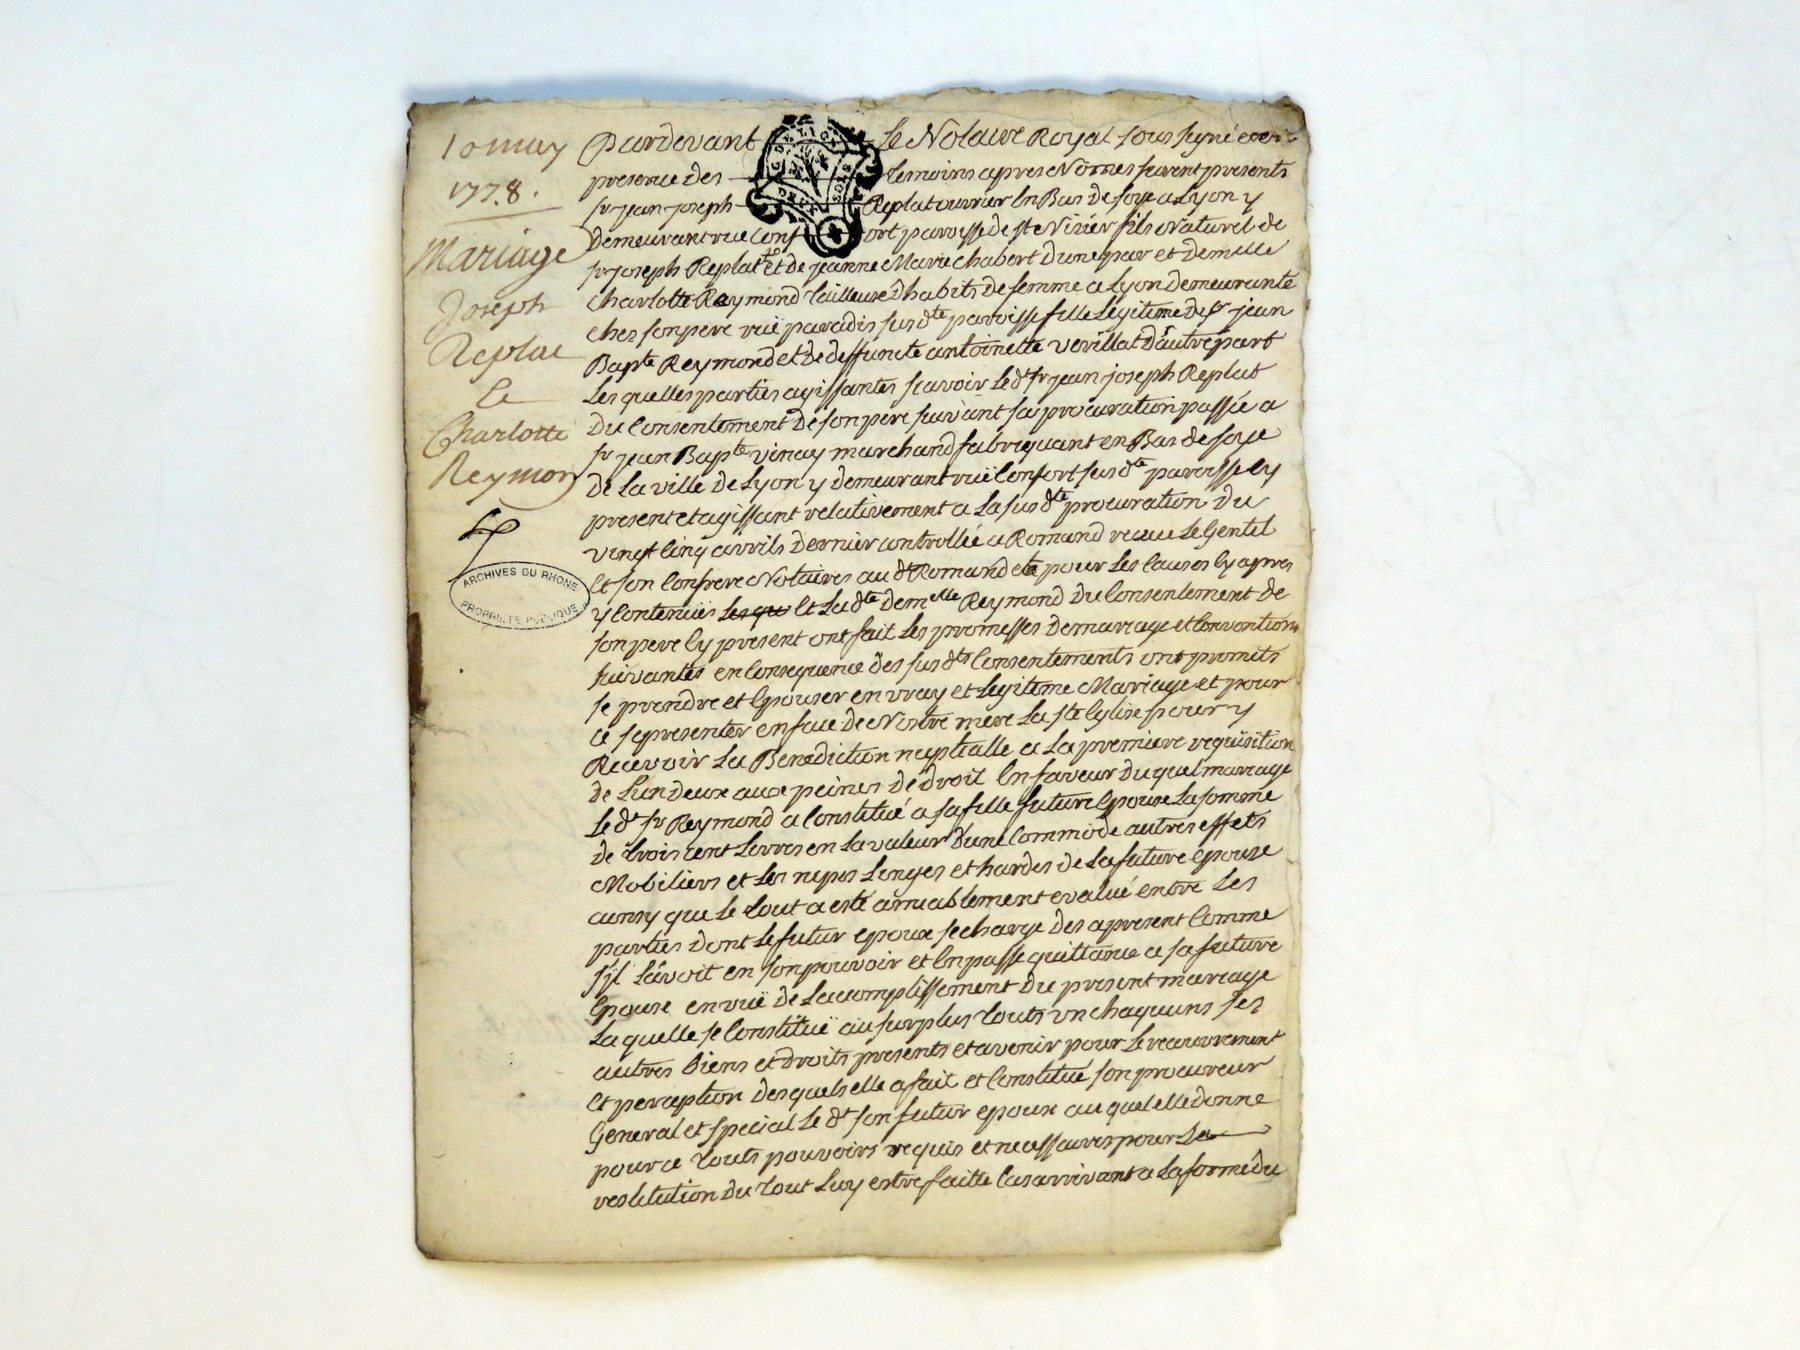 10 may
1778.
Mariage
Joseph
Replat
Et
Charlotte
Reymond
ARCHIVES DU RHONE
PROPRIETE PUBLIQUE
G. DE LYON
SOLS
Pardevant Le Notaire Royal soussigné et en
presence des temoins apres Nommes furent presents
sr jean joseph Replat ouvrier En Bas de soye a Lyon y
demeurant rue Confort paroisse de st Nizier fils Naturel de
sr joseph Replat et de jeanne Marie Chabert dune par et demelle
Charlotte Raymond tailleuse dhabits de femme a Lyon demeurante
ches son pere ruë paradis susdte paroisse fille Legitime de sr jean
Bapte Reymond et de deffuncte antoinette verillat dautre part
Les quelles parties agissantes scavoir Le dt sr jean joseph Replat
du Consentement de son pere suivant sa procuration passée a
sr jean Bapte vinay marchand fabriquant en Bas de soye
de La ville de Lyon y demeurant ruë Confort susdte paroisse Cy
present et agissant relativement a La susdte procuration du
vingt Cinq avrils dernier controllée a Romand recue Le Gentil
Et son Confrere Notaires au dt Romand et pour Les Causes Cy apres
y Contenües Les qu Et La dte demelle Reymond du Consentement de
son pere Cy present ont fait Les promesses de mariage et Conventions
suivantes en Consequence des susdts Consentements ont promits
se prendre et Epouser en vray et Legitime Mariage et pour
ce se presenter en face de Nostre mere La ste Eglise pour y
Recevoir La Benediction nuptialle a La premiere requisition
de L'un deux aux peines de droit En faveur du quel mariage
Le dt sr Reymond a Constitué a sa fille future Epouse La somme
de trois cent Livres en La valeur dune Commode autres effets
Mobiliers et Les nipes Linges et hardes de La future epouse
ainsy que Le tout a esté amiablement evalué entre Les
parties dont Le futur epoux se charge des a present Comme
s'jl L'avoit en son pouvoir et En passe quittance a sa future
Epouse en vuë de Lacomplissement du present mariage
La quelle se Constituë au surplus touts vn chaquuns ses
autres biens et droits presents et avenir pour Le recouvrement
Et perception desquels elle a fait et Constitué son procureur
General et special Le dt son futur epoux au quel elle donne
pour ce touts pouvoirs requis et necessaires pour La
restitution du tout Luy estre faitte Cas arrivant a La forme du